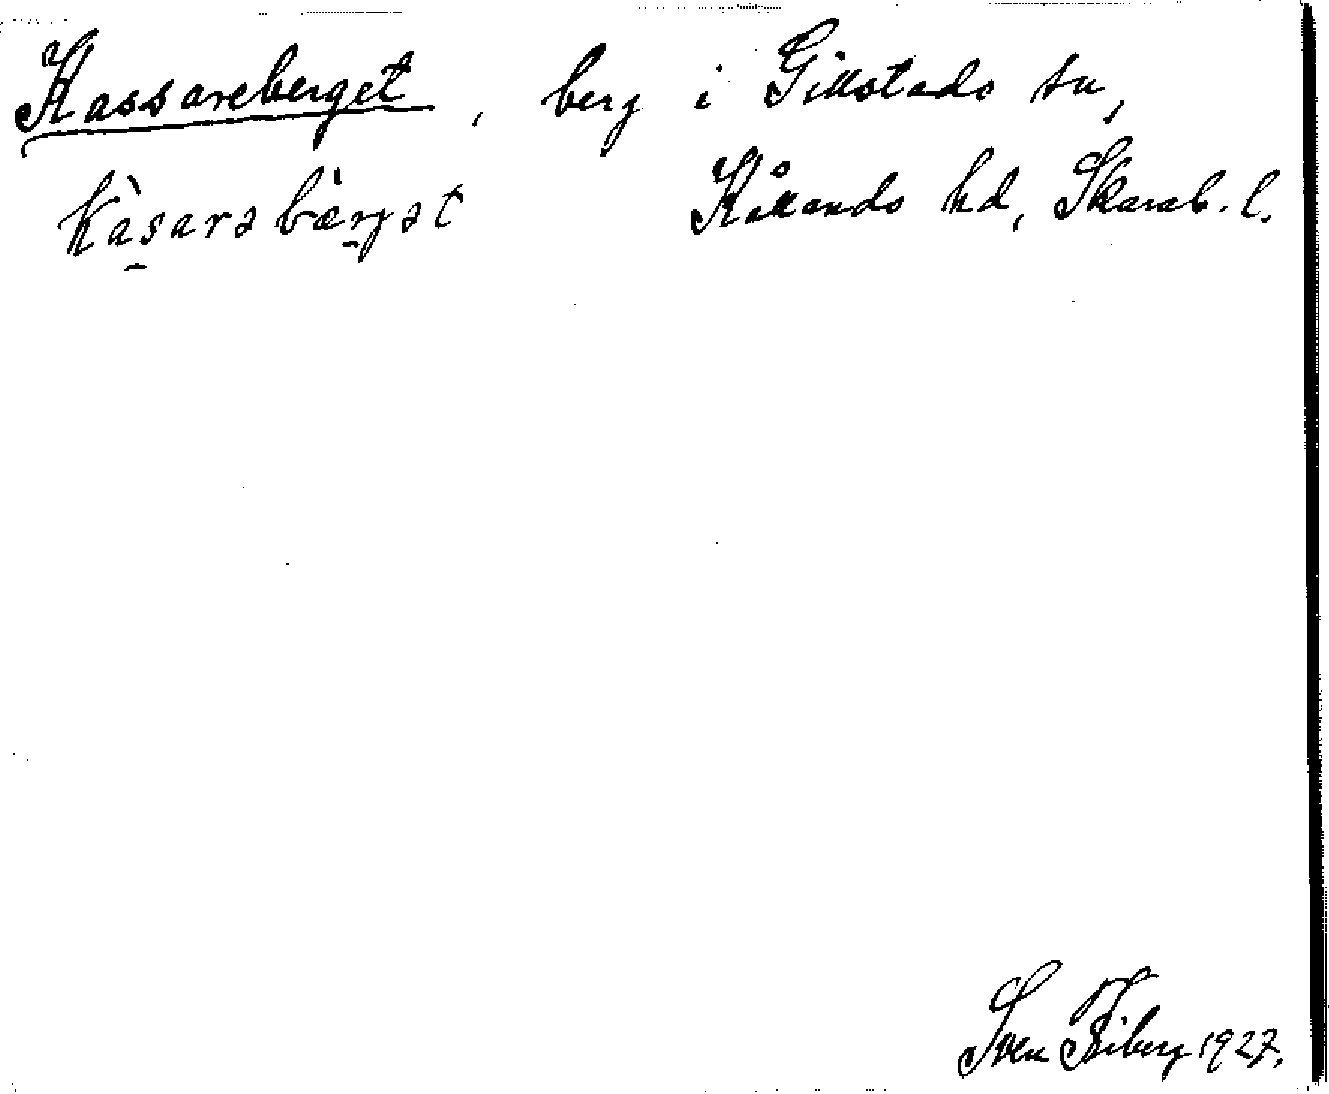 Kassareberget, berg i Gillstads sn,
kàsarəbær̀jət Kållands hd, Skarab. l.
Sven Fiberg 1927.